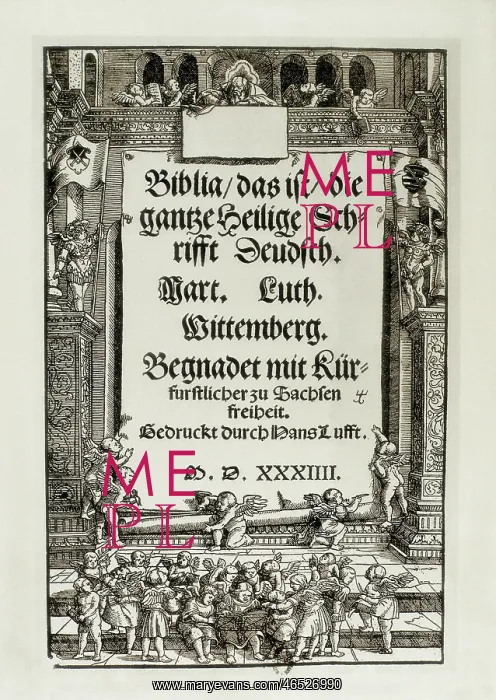 Biblia/ das ist/ die
gantze Heilige Sch-
rifft Deudsch.
Mart. Luth.
Wittemberg.
Begnadet mit Kür-
furstlicher zu Sachsen
freiheit.
Gedruckt durch Hans Lufft.
M. D. XXXIIII.
ME
PL
ME
PL
www.maryevans.com/46526990